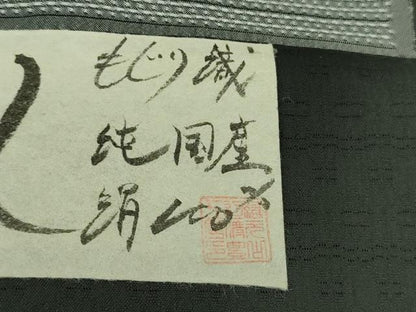 もじり織
純国産
絹100%